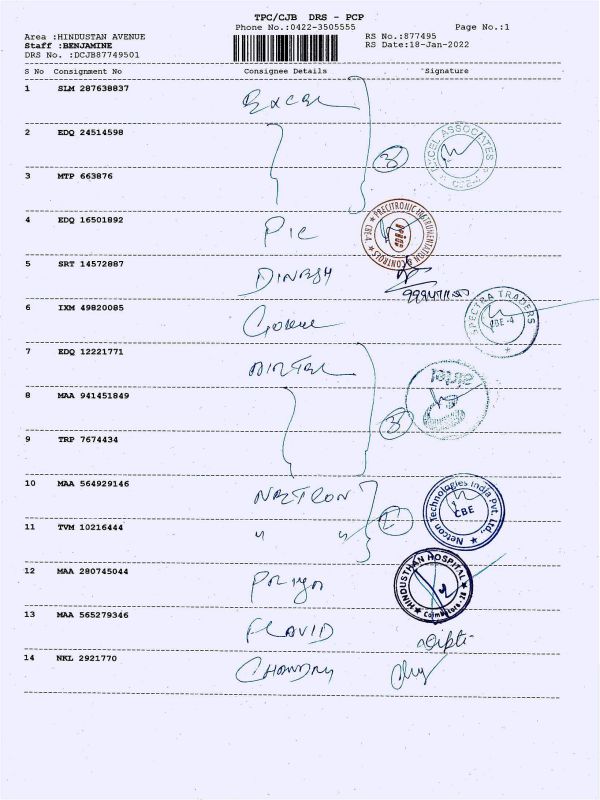 TPC/CJB DRS - PCP
Phone No.:0422-3505555 Page No.:1
Area :HINDUSTAN AVENUE RS No.:877495
Staff :BENJAMINE RS Date:18-Jan-2022
DRS No. :DCJB87749501
S No Consignment No Consignee Details Signature
1 SLM 287638837 Excel
2 EDQ 24514598
EXCEL ASSOCIATES
3 MTP 663876
4 EDQ 16501892 PIC
PRECITRONIC INSTRUMENTATION & CONTROLS CBE-4
5 SRT 14572887 DINESH
6 IXM 49820085
SPECTRA TRADERS CBE-4
7 EDQ 12221771 AIRTEL
airtel
8 MAA 941451849
9 TRP 7674434
10 MAA 564929146 NETCON
Netcon Technologies India Pvt. Ltd., CBE
11 TVM 10216444 " "
12 MAA 280745044
HINDUSTHAN HOSPITAL Coimbatore-28
13 MAA 565279346 FLAVID
14 NKL 2921770